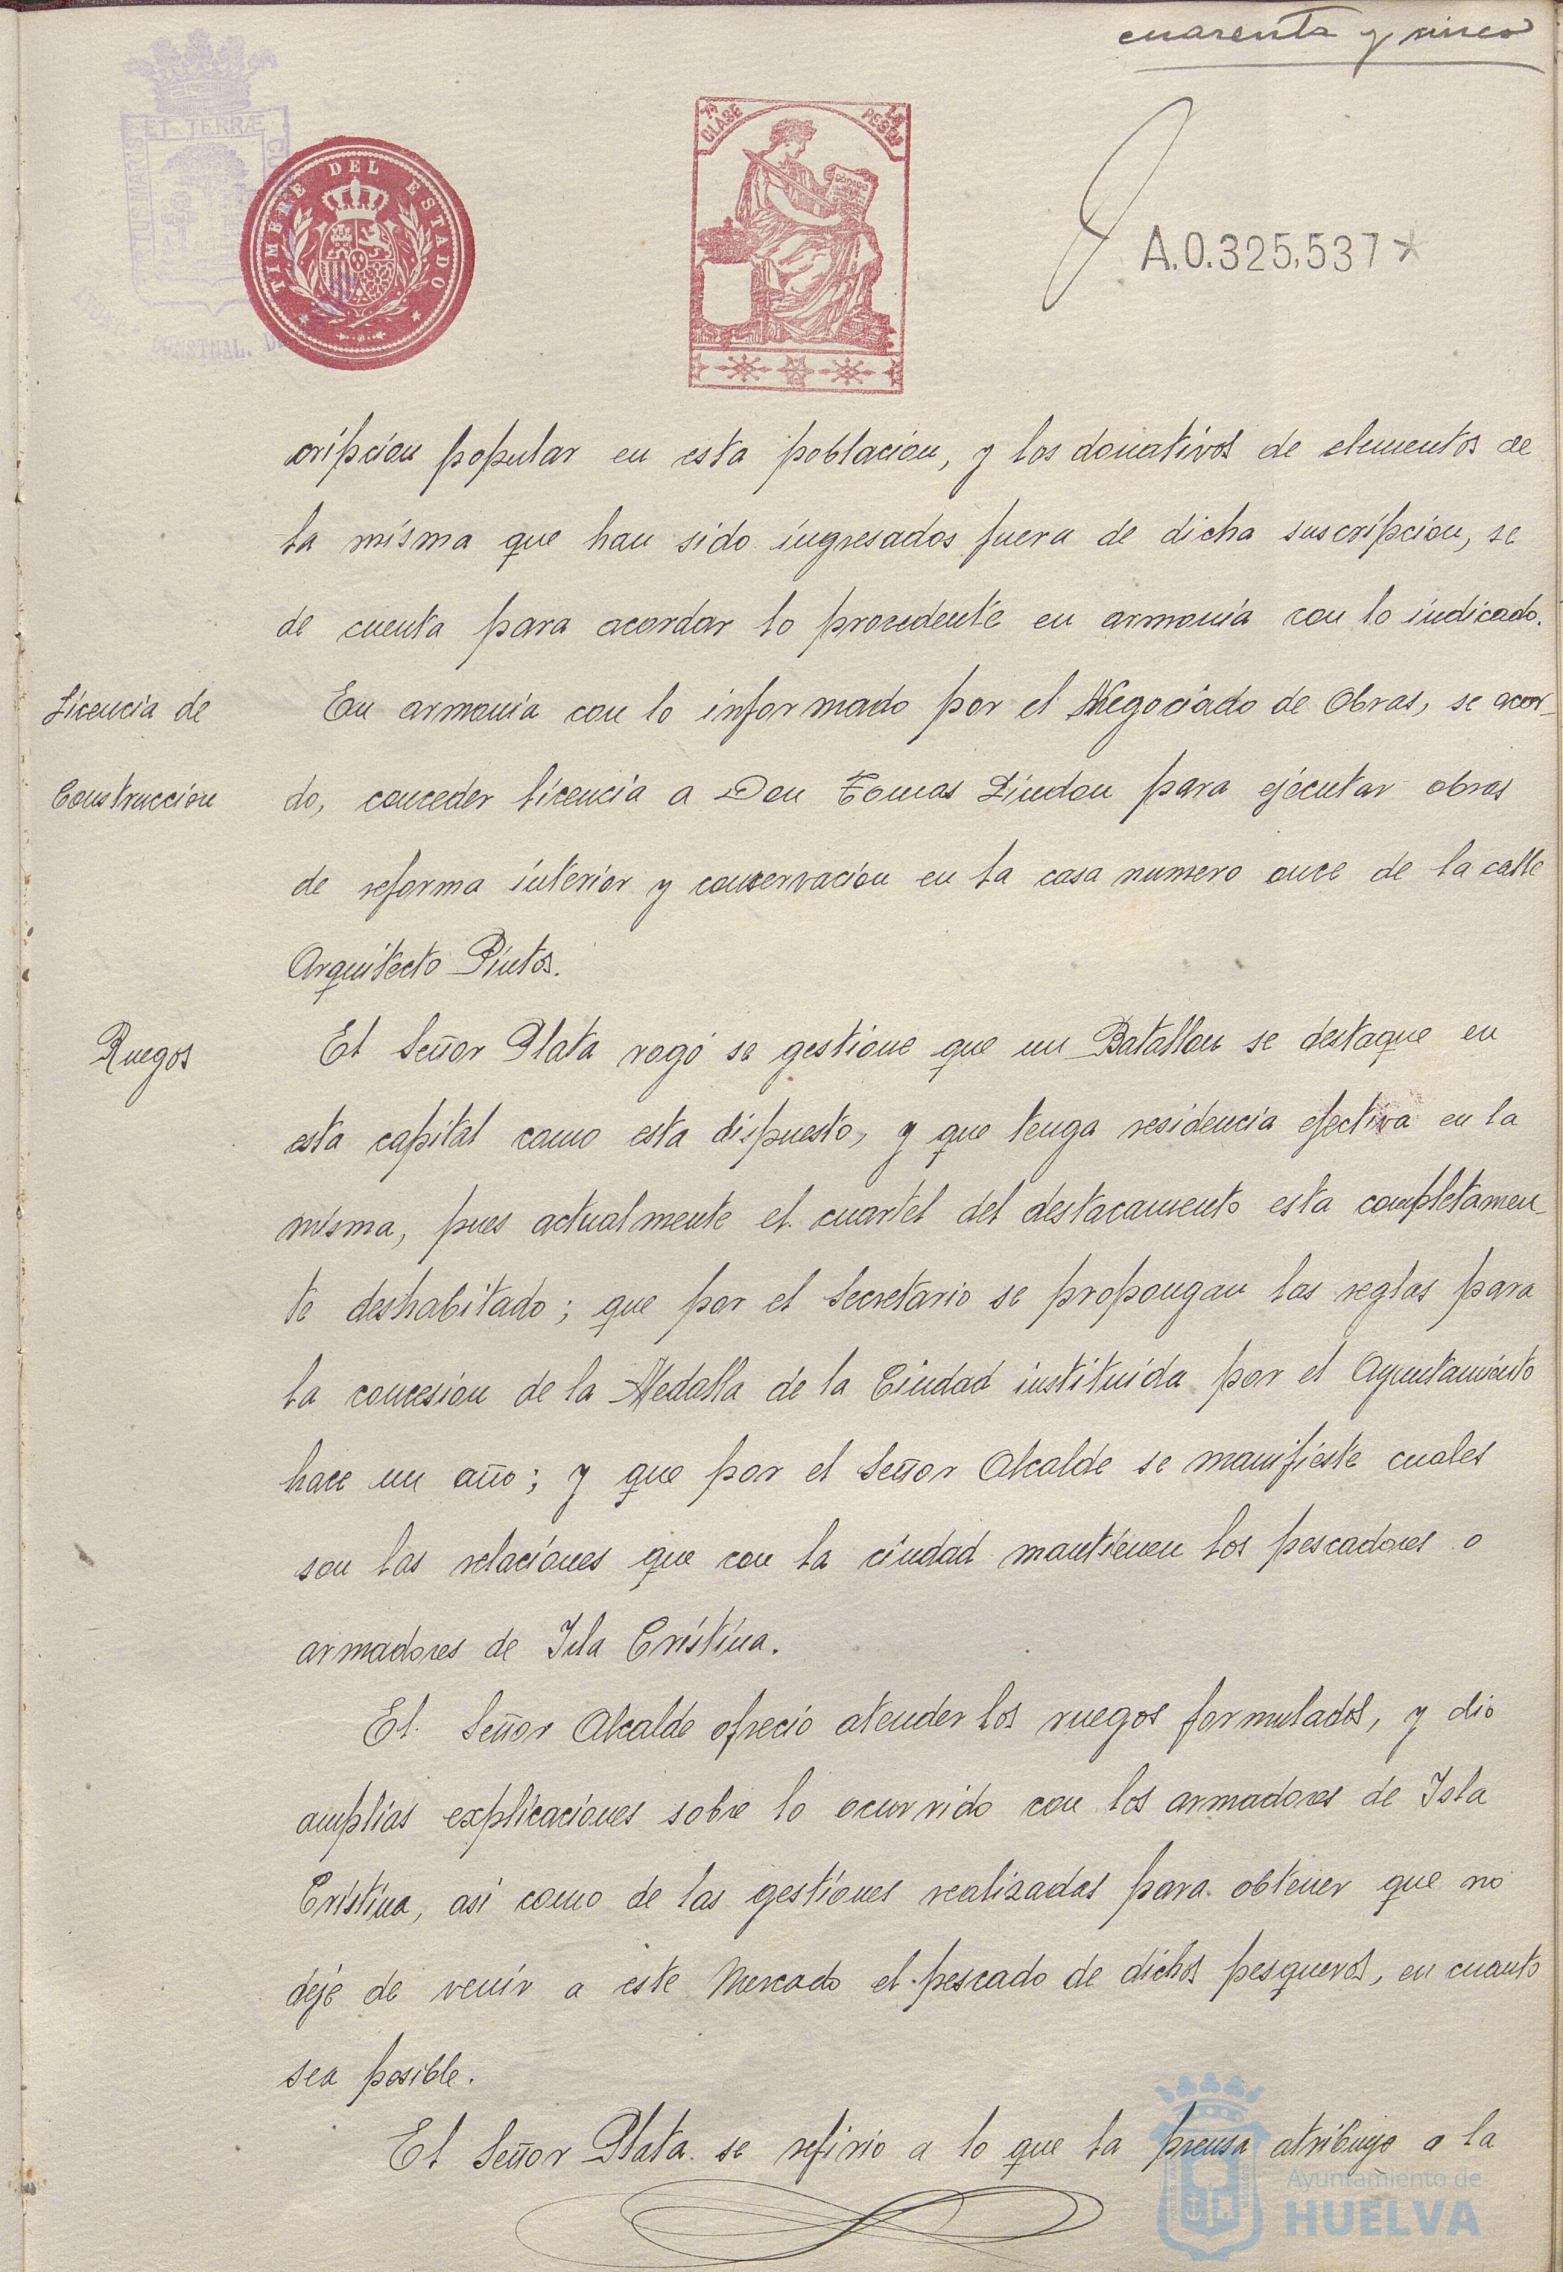 cuarenta y cinco
ET TERRÆ
TIMBRE DEL ESTADO
7ª CLASE
PESETA
A.0.325,537*
cripcion popular en esta poblacion, y los donativos de elementos de
la misma que han sido ingresados fuera de dicha suscripcion, se
de cuenta para acordar lo procedente en armonia con lo indicado.
Licencia de
En armonia con lo informado por el Negociado de Obras, se acor-
Construccion
do, conceder licencia a Don Tomas Lindon para ejecutar obras
de reforma interior y conservacion en la casa numero once de la calle
Arquitecto Pintos.
Ruegos
El Señor Plata rogó se gestione que un Batallon se destaque en
esta capital como esta dispuesto, y que tenga residencia efectiva en la
misma, pues actualmente el cuartel del destacamento esta completamen-
te deshabitado; que por el Secretario se propongan las reglas para
la concesion de la Medalla de la Ciudad instituida por el Ayuntamiento
hace un año; y que por el Señor Alcalde se manifieste cuales
son las relaciones que con la ciudad mantienen los pescadores o
armadores de Isla Cristina.
El Señor Alcalde ofrecio atender los ruegos formulados, y dio
amplias explicaciones sobre lo ocurrido con los armadores de Isla
Cristina, asi como de las gestiones realizadas para obtener que no
deje de venir a este Mercado el pescado de dichos pesqueros, en cuanto
sea posible.
El Señor Plata se refirio a lo que la prensa atribuye a la
Ayuntamiento de
HUELVA